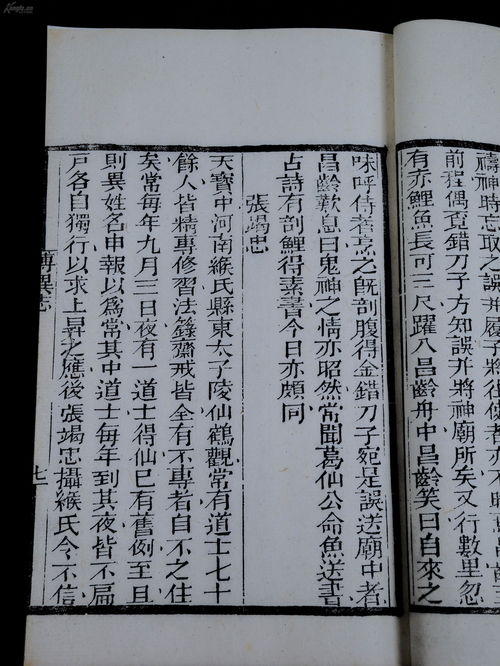 禱神時忘取之誤并履子將往使者亦不
前程偶覓錯刀子方知誤并將神廟所矣又行數里忽
有赤鯉魚長可三尺躍入昌齡舟中昌齡笑曰自來之
味呼侍者烹之既剖腹得金錯刀子宛是誤送廟中者
昌齡歎息曰鬼神之情亦昭然常聞葛仙公命魚送書
占詩有剖鯉得素書今日亦頗同
張竭忠
天寶中河南緱氏縣東太子陵仙鶴觀常有道士七十
餘人皆精專修習法籙齋戒皆全有不專者自不之住
矣常每年九月三日夜有一道士得仙已有舊例至旦
則異姓名申報以爲常其中道士每年到其夜皆不扄
戸各自獨行以求上昇之應後張竭忠攝緱氏令不信
博異志
七
Kongfz.cn